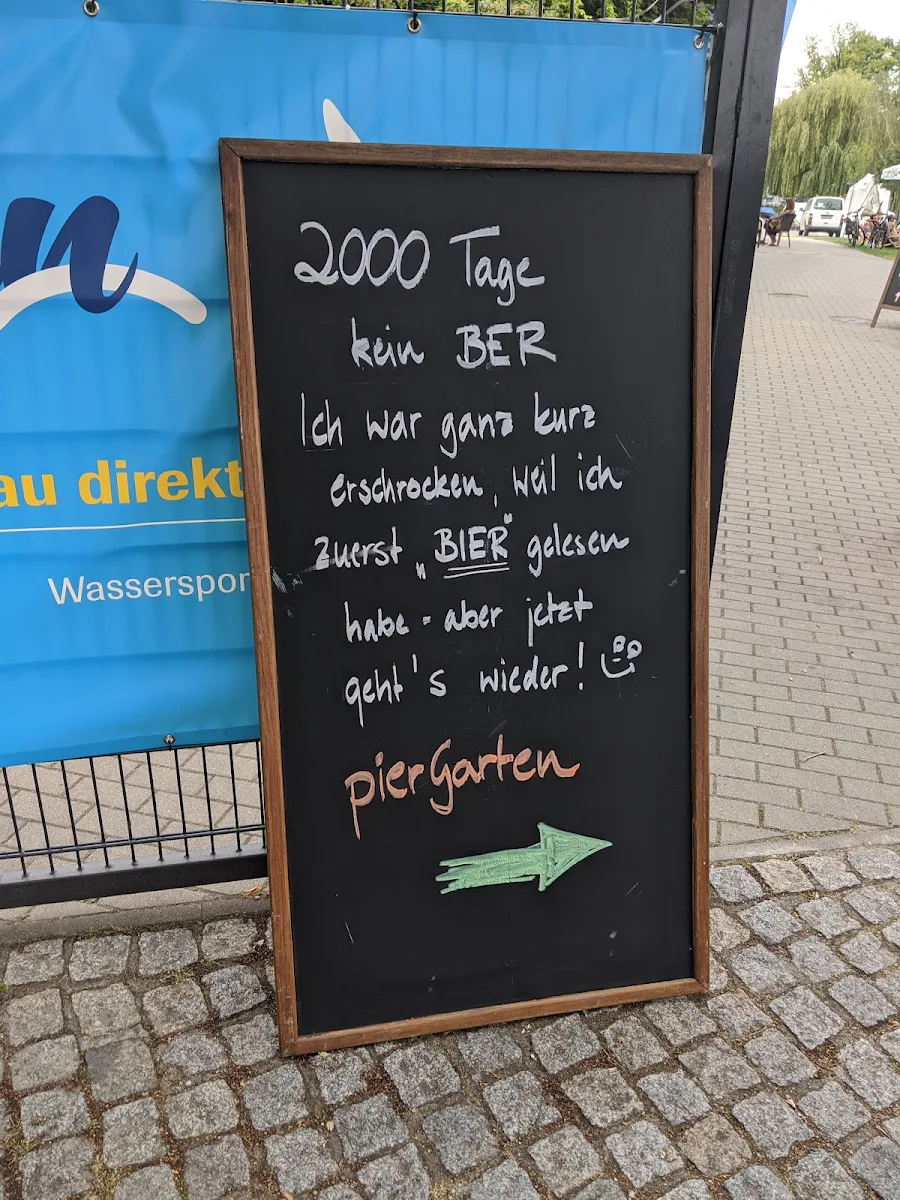 n
au direkt
Wasserspor
2000 Tage
kein BER
Ich war ganz kurz
erschrocken, weil ich
zuerst „BIER" gelesen
habe - aber jetzt
geht's wieder!
pierGarten